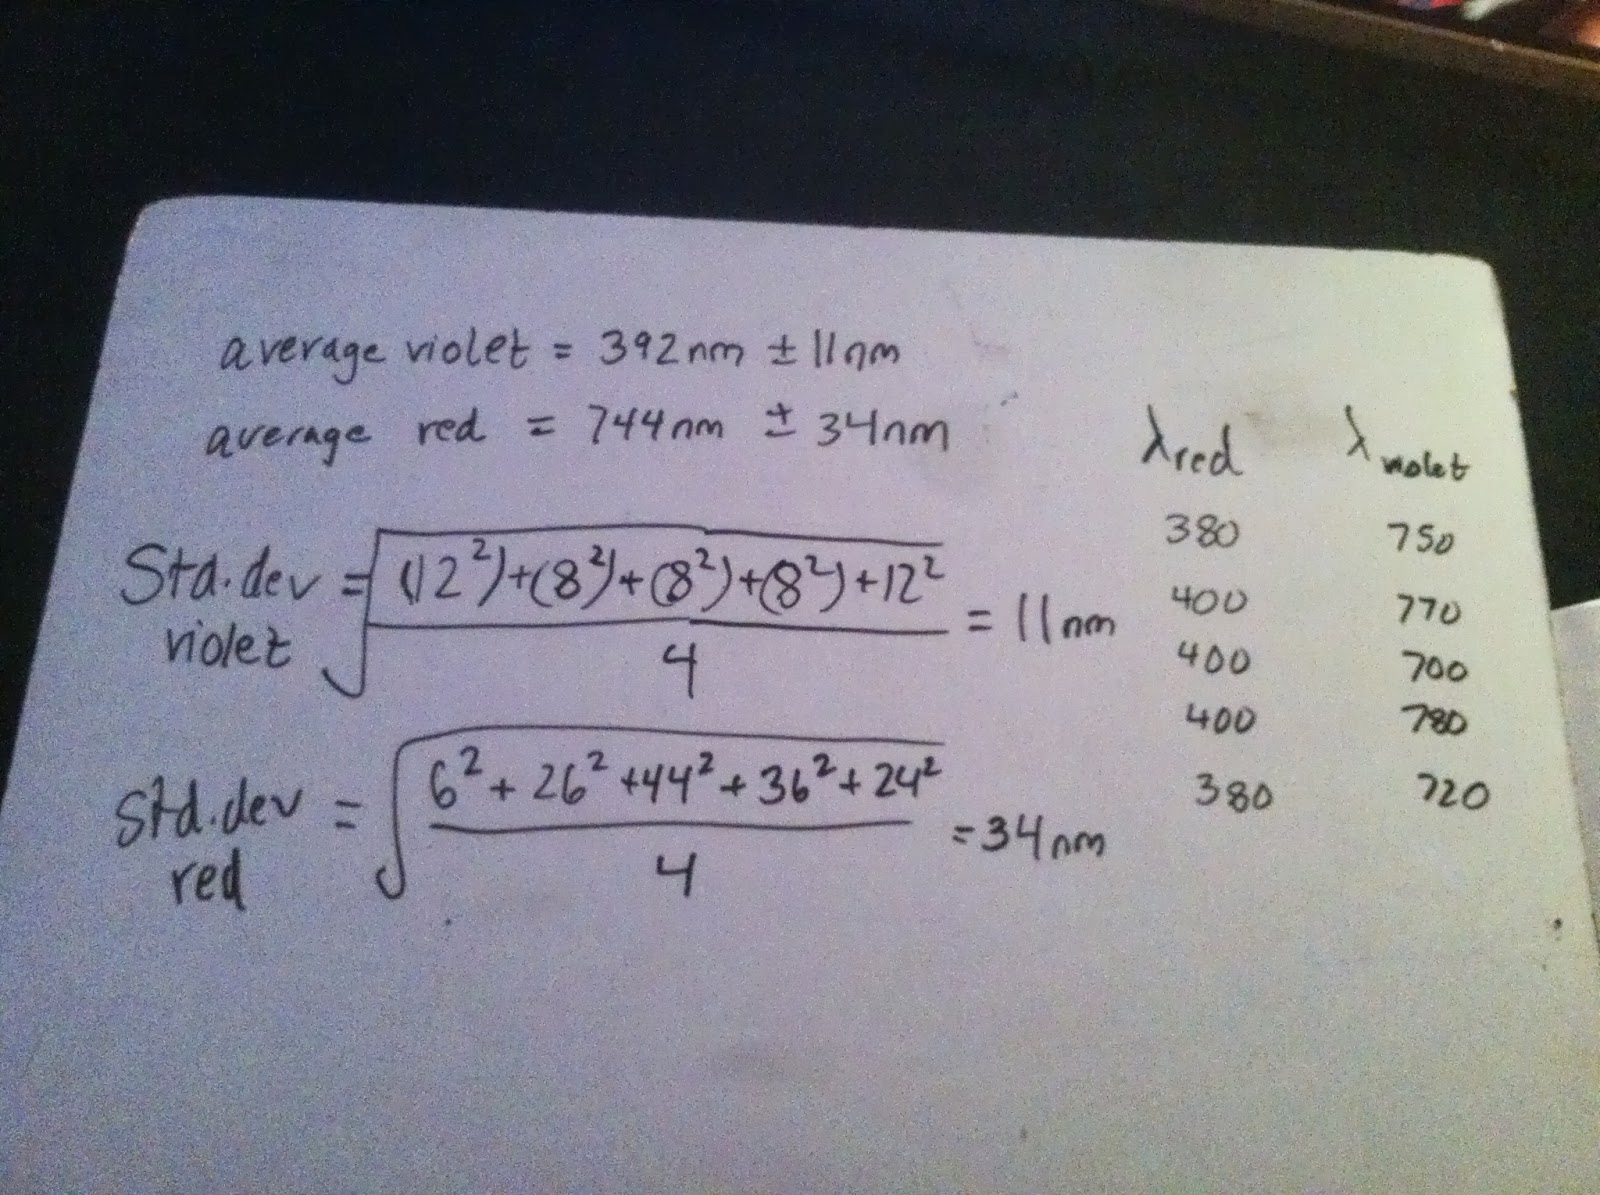 average violet = 392nm ± 11nm
average red = 744nm ± 34nm
Std.dev violet = √((12²)+(8²)+(8²)+(8²)+12² / 4) = 11nm
Std.dev red = √(6² + 26² + 44² + 36² + 24² / 4) = 34nm
λred λviolet
380 750
400 770
400 700
400 780
380 720